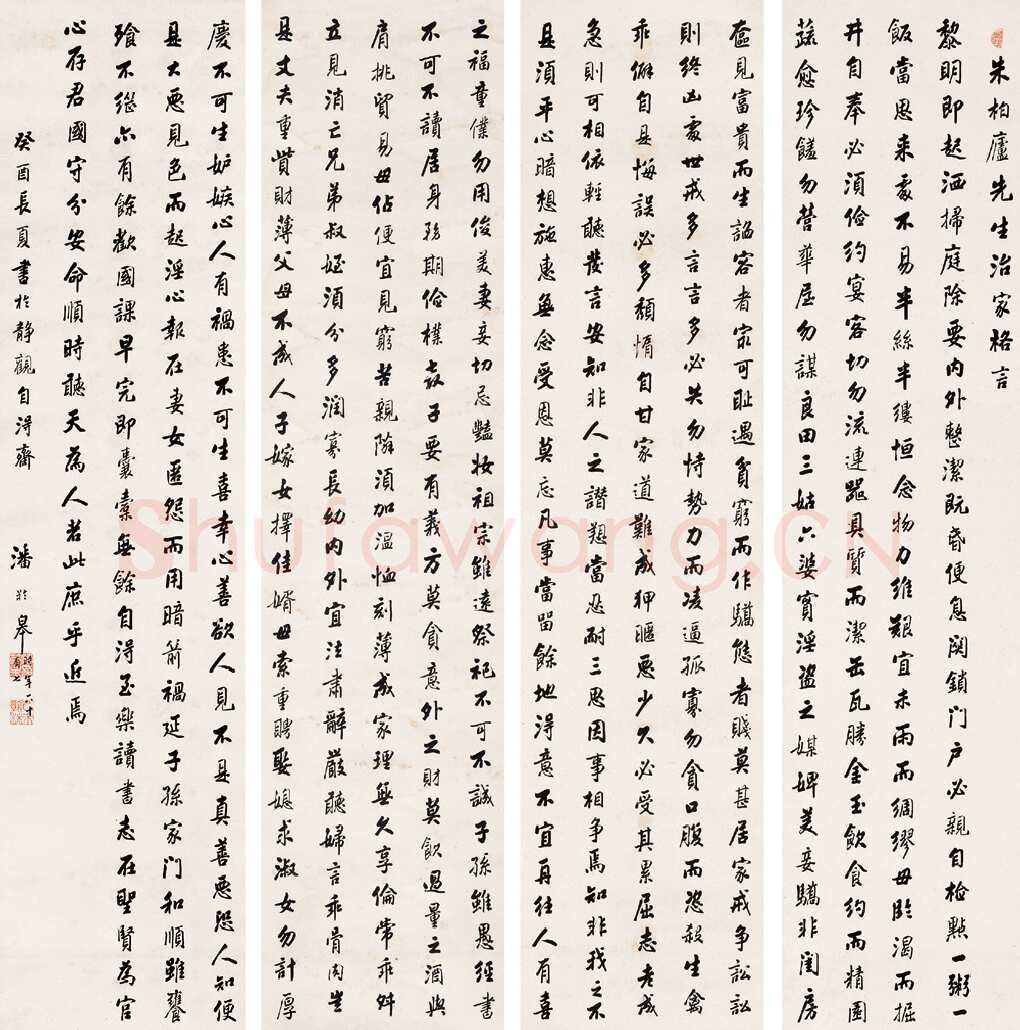 朱柏廬先生治家格言
黎明即起洒掃庭除要内外整潔既昏便息関鎖门户必親自检點一粥一
飯當思来處不易半絲半縷恒念物力維艱宜未雨而綢繆毋臨渴而掘
井自奉必須俭約宴客切勿流連器具質而潔缶瓦勝金玉飲食約而精園
蔬愈珍饈勿營華屋勿謀良田三姑六婆實淫盜之媒婢美妾驕非閨房
奩見富貴而生諂容者最可耻遇貧窮而作驕態者賤莫甚居家戒争訟訟
則終凶處世戒多言言多必失勿恃勢力而凌逼孤寡勿貪口腹而恣殺生禽
乖僻自是悔誤必多頹惰自甘家道難成狎暱恶少久必受其累屈志老成
急則可相依輕聽發言安知非人之譖愬當忍耐三思因事相争焉知非我之不
是須平心暗想施惠無念受恩莫忘凡事當留餘地得意不宜再往人有喜
之福童僕勿用俊美妻妾切忌豔妝祖宗雖遠祭祀不可不誠子孫雖愚經書
不可不讀居身務期俭樸教子要有義方莫貪意外之財莫飲過量之酒與
肩挑貿易毋佔便宜見窮苦親隣須加温恤刻薄成家理無久享倫常乖舛
立見消亡兄弟叔姪須分多润寡長幼内外宜法肅辭嚴聽婦言乖骨肉豈
是丈夫重貲財薄父母不成人子嫁女擇佳婿毋索重聘娶媳求淑女勿計厚
慶不可生妒嫉心人有禍患不可生喜幸心善欲人見不是真善恶恐人知便
是大恶見色而起淫心報在妻女匿怨而用暗箭禍延子孫家门和順雖饔
飧不繼亦有餘歡國課早完即囊橐無餘自得至樂讀書志在聖賢為官
心存君國守分安命順時聽天為人若此庶乎近焉
癸酉長夏書於静觀自得齋 潘龄皋
Shufawang.CN